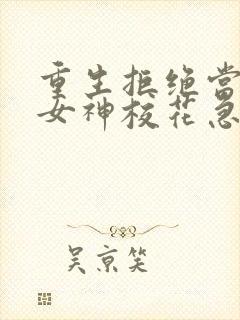 重生拒绝当
女神校花急
吴京笑